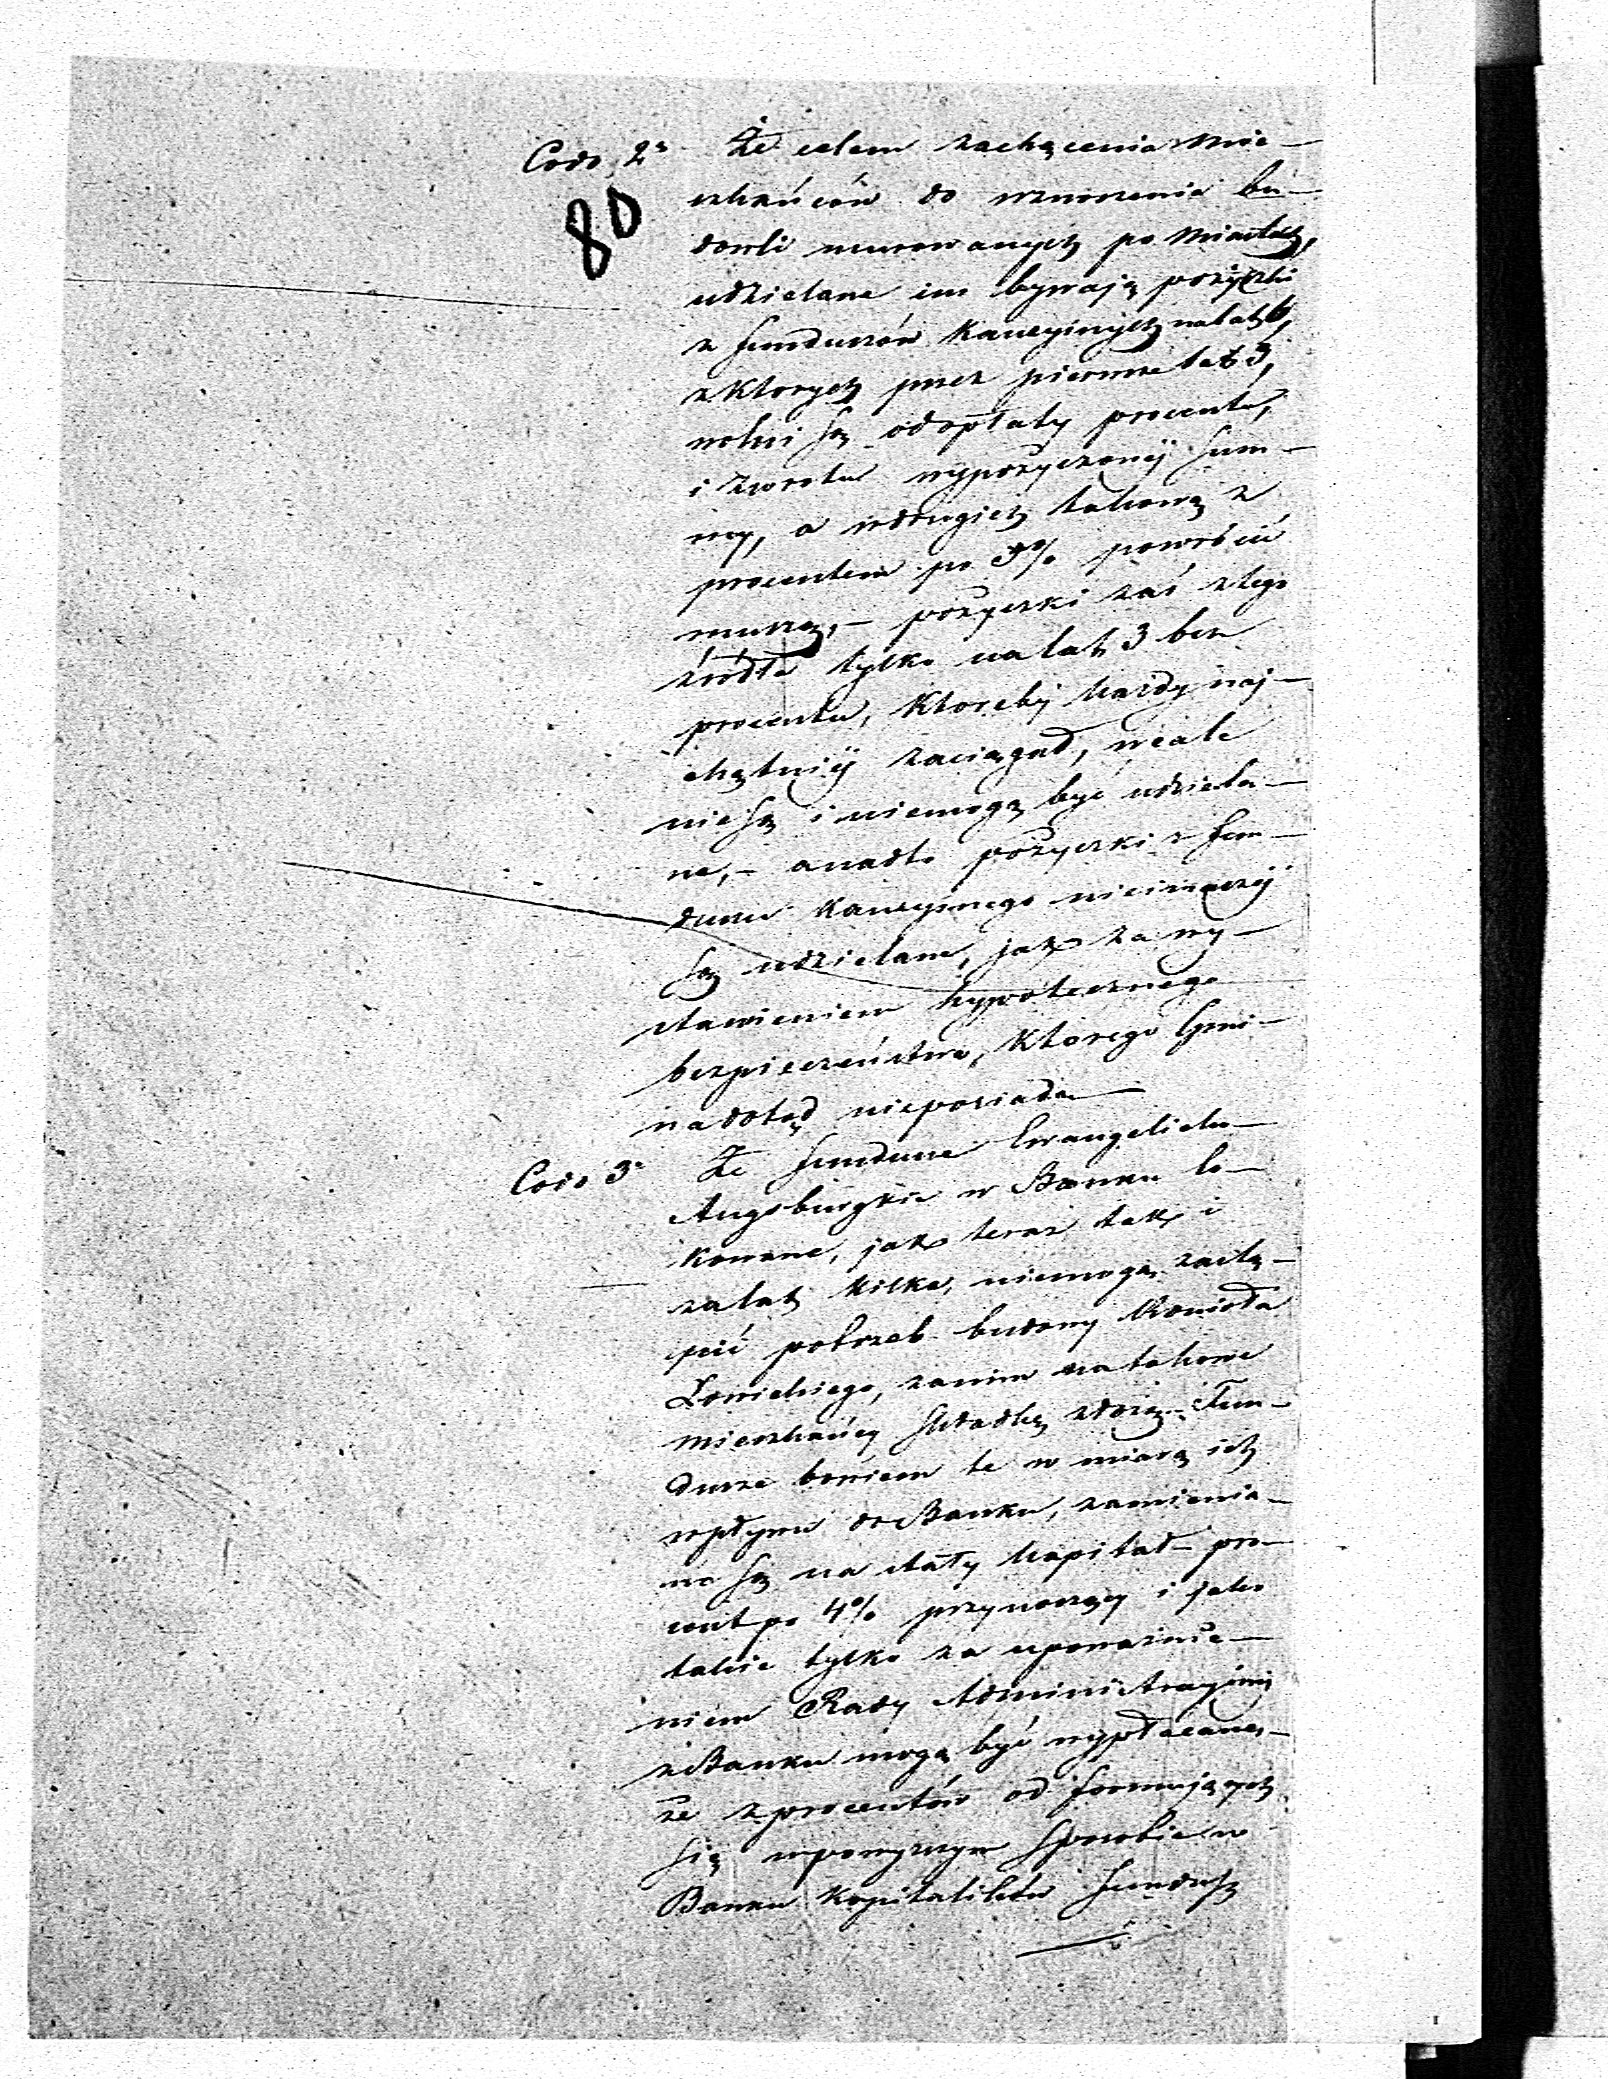 Co do 2º Że celem zachęcenia Mie-
szkańców do wznoszenia bu-
dowli murowanych po Miastach,
udzielane im bywają pożyczki
z funduszów Kaucyinych na lat 6,
z których przez pierwsze lat 3,
wolni są od opłaty procentu,
i zwrotu wypożyczonéj sum-
my, a w drugich takową z
procentem po % powrócić
muszą, - pożyczki zaś z tego
źródła tylko na lat 3 bez
procentu, któreby każdy naj-
chętniéj zaciągał, wcale
nie są i niemogą być udziela-
ne, - a nadto pożyczki z fun-
duszu Kaucyinego nieinaczéj
są udzielane, jak za wy-
stawieniem hypotecznego
bezpieczeństwa, którego Gmi-
na dotąd nieposiada
Co do 3º Że fundusze Ewangelicko-
Augsburgskie w Banku lo-
kowane, jak teraz tak i
za lat kilka, niemogą zastą-
pić potrzeb budowy Kościoła
Łowickiego, zanim na takowe
mieszkańcy składkę złożą. - Fun-
dusze bowiem te w miarę ich
wpływu do Banku, zamienia-
ne są na stały kapitał pro-
cent po 4% przynoszący i jako
takie tylko za upoważnie-
niem Rady Administracyinéj
z Banku mogą być wypłacane, -
że z procentów od formujących
się w powyższym sposobie w
Banku kapitalików fundusz
80